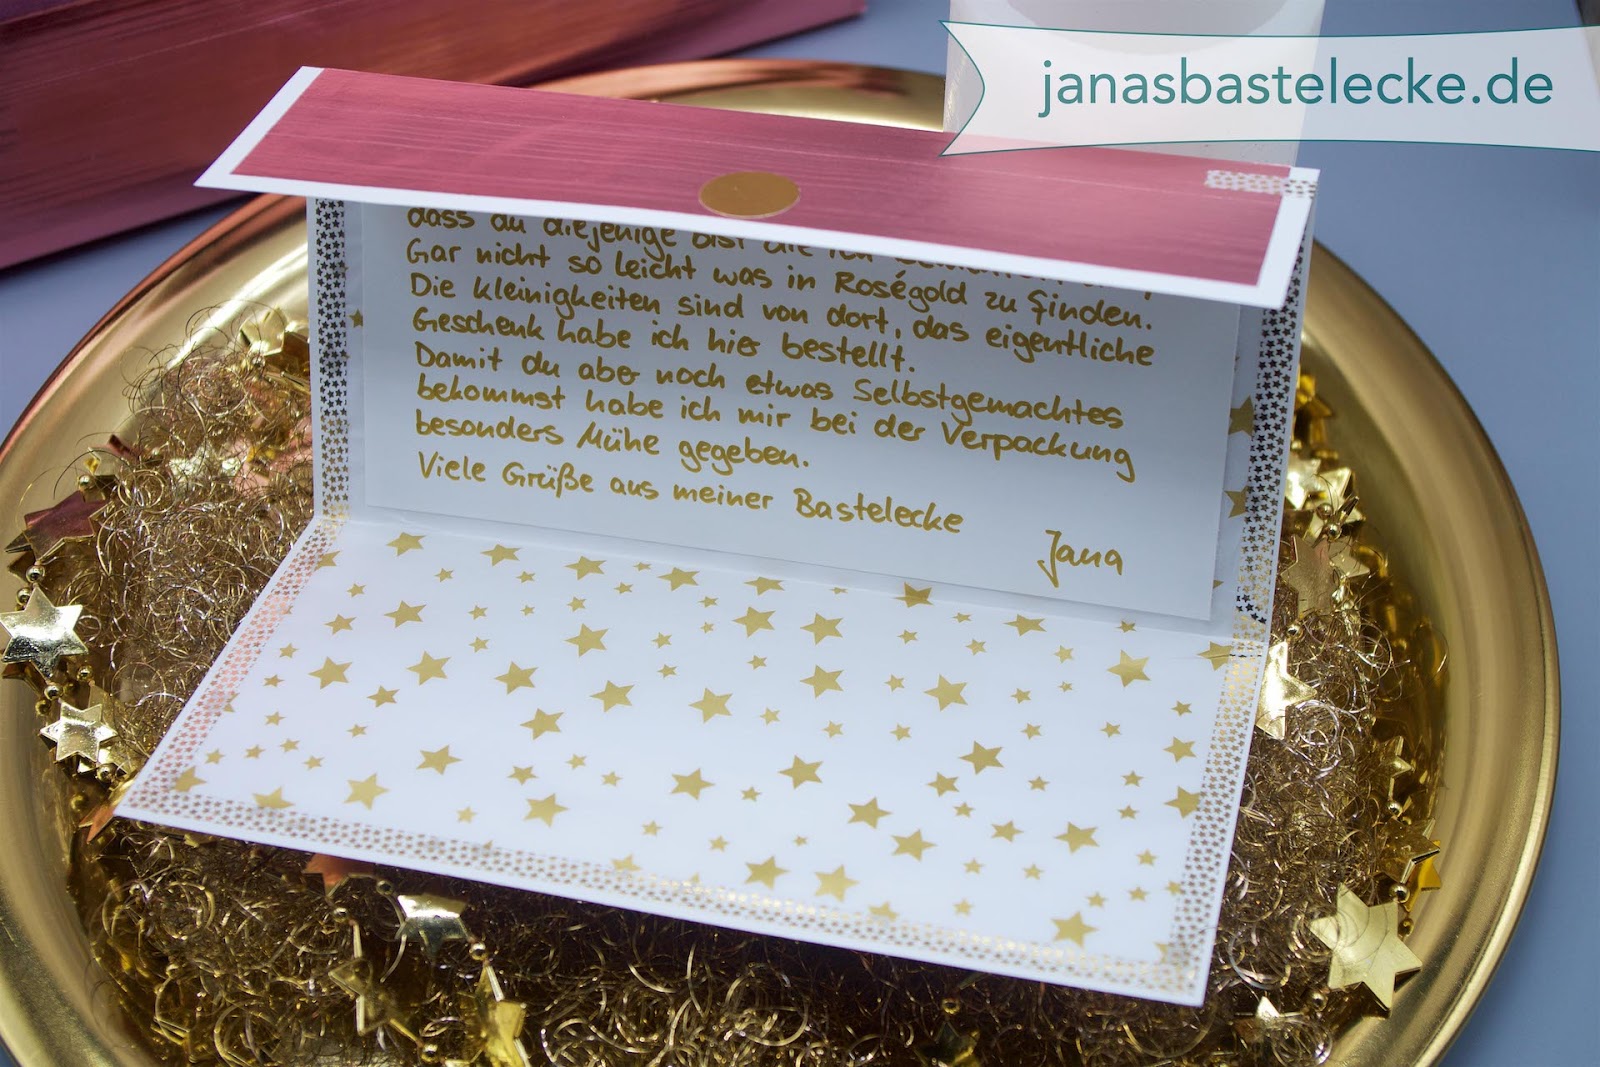 janasbastelecke.de
dass du diejenige bist die ich
Gar nicht so leicht was in Roségold zu finden.
Die kleinigkeiten sind von dort, das eigentliche
Geschenk habe ich hier bestellt.
Damit du aber noch etwas Selbstgemachtes
bekommst habe ich mir bei der Verpackung
besonders Mühe gegeben.
Viele Grüße aus meiner Bastelecke
Jana